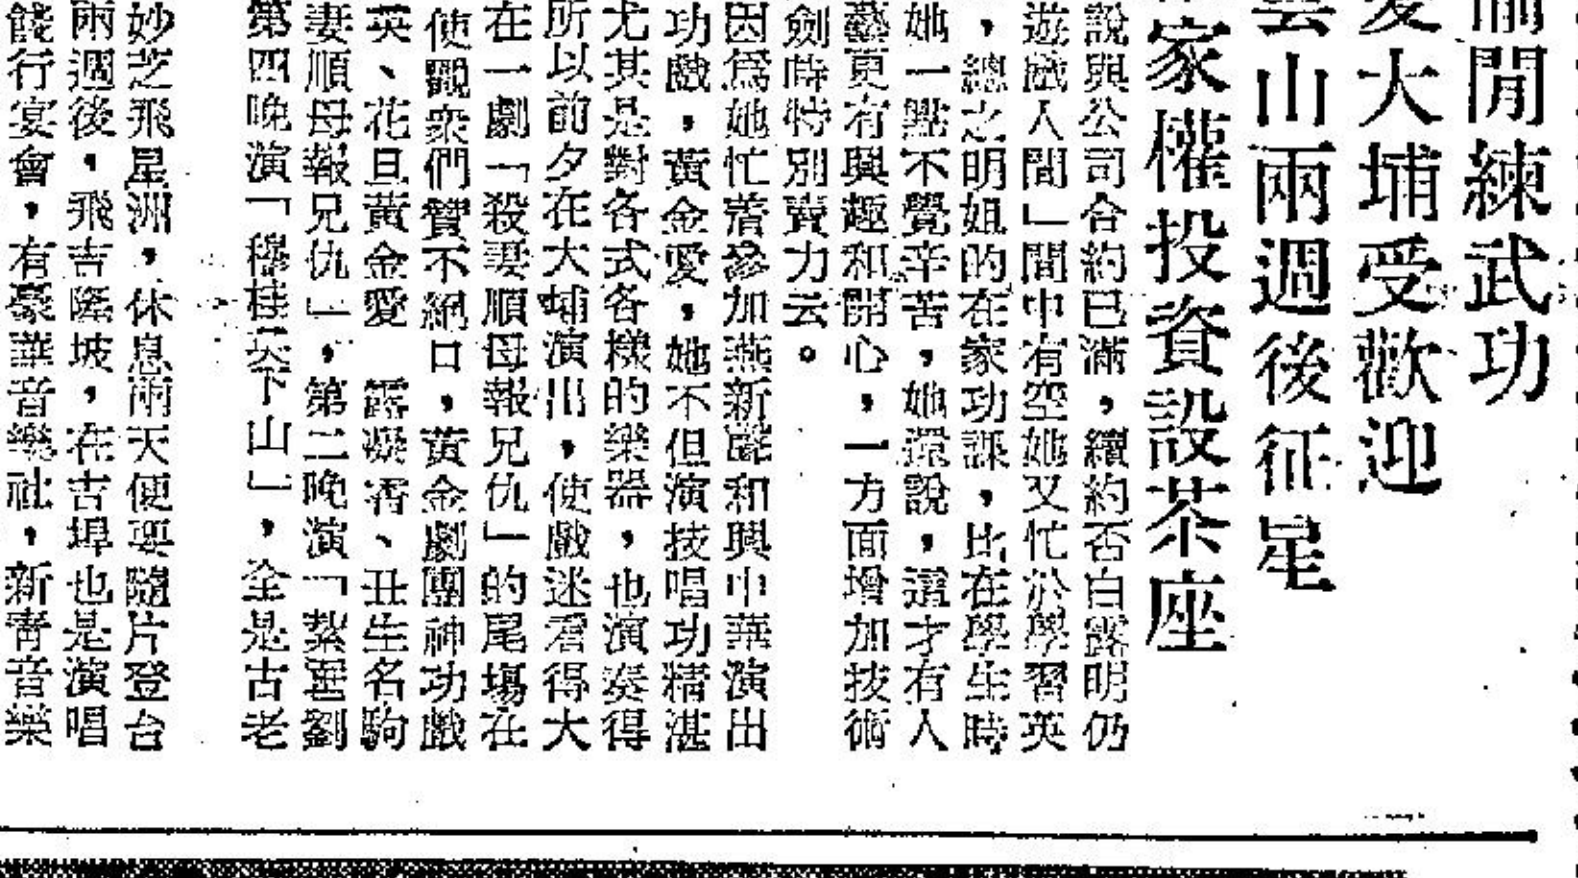 閒練武功
愛大埔受歡迎
雲山兩週後征星
家權投資設茶座
說與公司合約已滿，續約否白露明仍
遊戲人間」間中有空她又忙於學習英
，總之明姐的在家功課，比在學生時
她一點不覺辛苦，她還說，這才有人
藝更有興趣和開心，一方面增加技術
劍時特別賣力云。
因爲她忙着參加燕新聲和興中華演出
功戲，黃金愛，她不但演技唱功精湛
尤其是對各式各樣的樂器，也演奏得
所以前夕在大埔演出，使戲迷看得大
在一劇「殺妻順母報兄仇」的尾場在
使觀衆們贊不絕口，黃金劇團神功戲
英、花旦黃金愛　露凝香、丑生名駒
妻順母報兄仇」，第二晚演「紮罣劉
第四晚演「穆桂英下山」，全是古老
妙芝飛星洲，休息兩天便要隨片登台
兩週後，飛吉隆坡，在吉埠也是演唱
餞行宴會，有豪華音樂社，新靑音樂